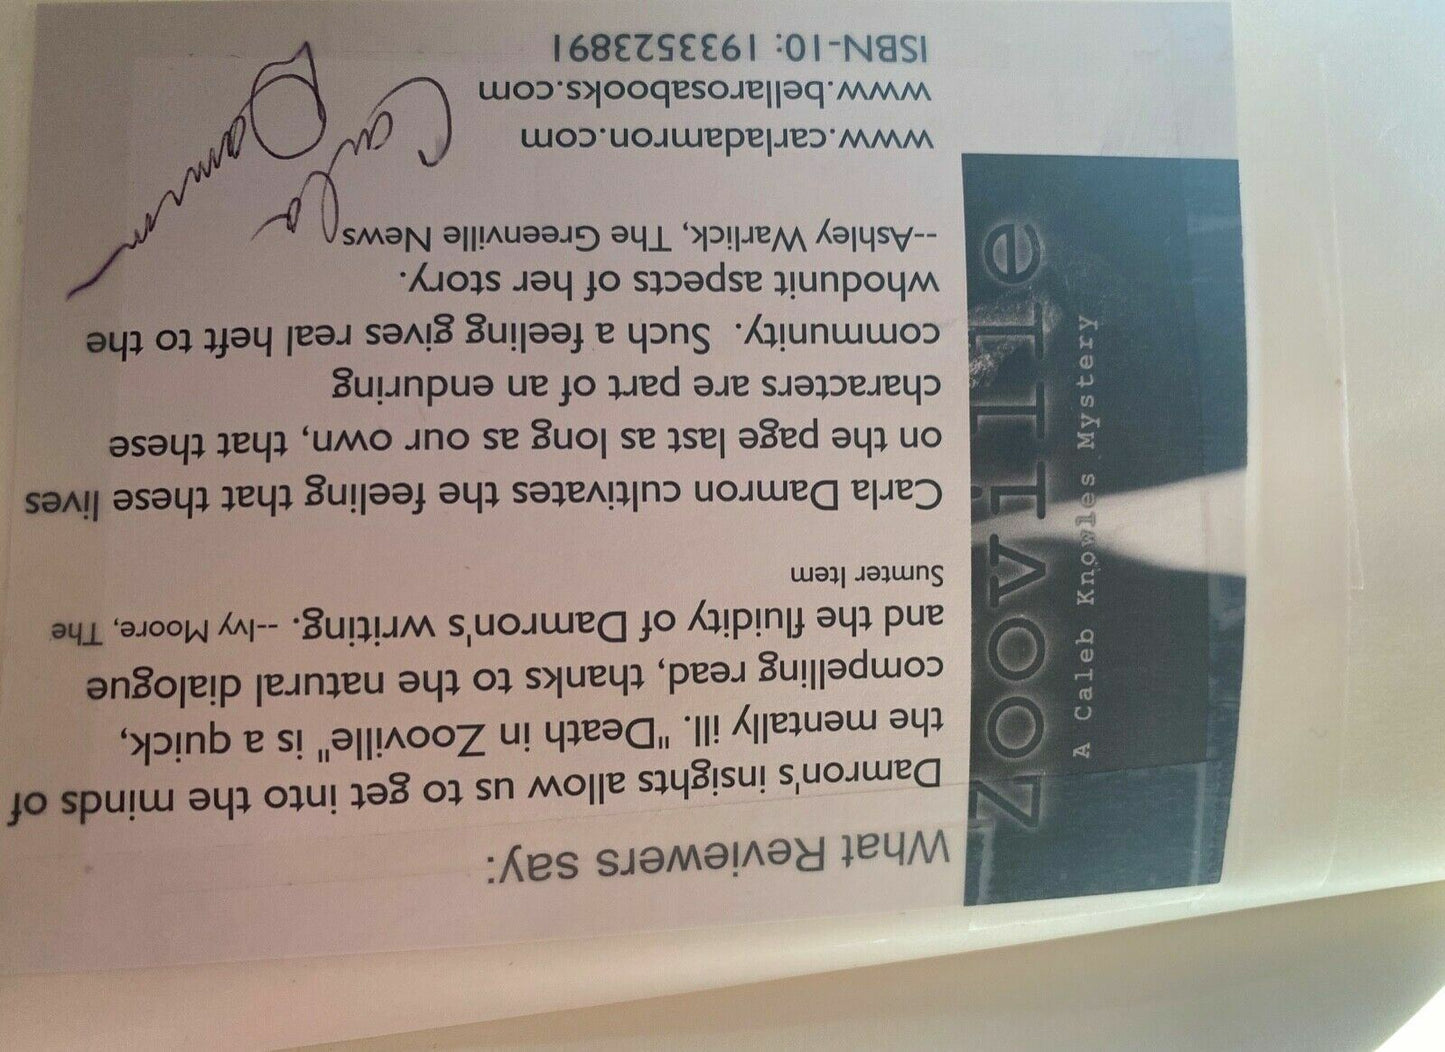 What Reviewers say:
Damron's insights allow us to get into the minds of
the mentally ill. "Death in Zooville" is a quick,
compelling read, thanks to the natural dialogue
and the fluidity of Damron's writing. --Ivy Moore, The
Sumter Item
Carla Damron cultivates the feeling that these lives
on the page last as long as our own, that these
characters are part of an enduring
community. Such a feeling gives real heft to the
whodunit aspects of her story.
--Ashley Warlick, The Greenville News
www.carladamron.com
www.bellarosabooks.com
ISBN-10: 1933523891
Carla
Damron
Zooville
A Caleb Knowles Mystery